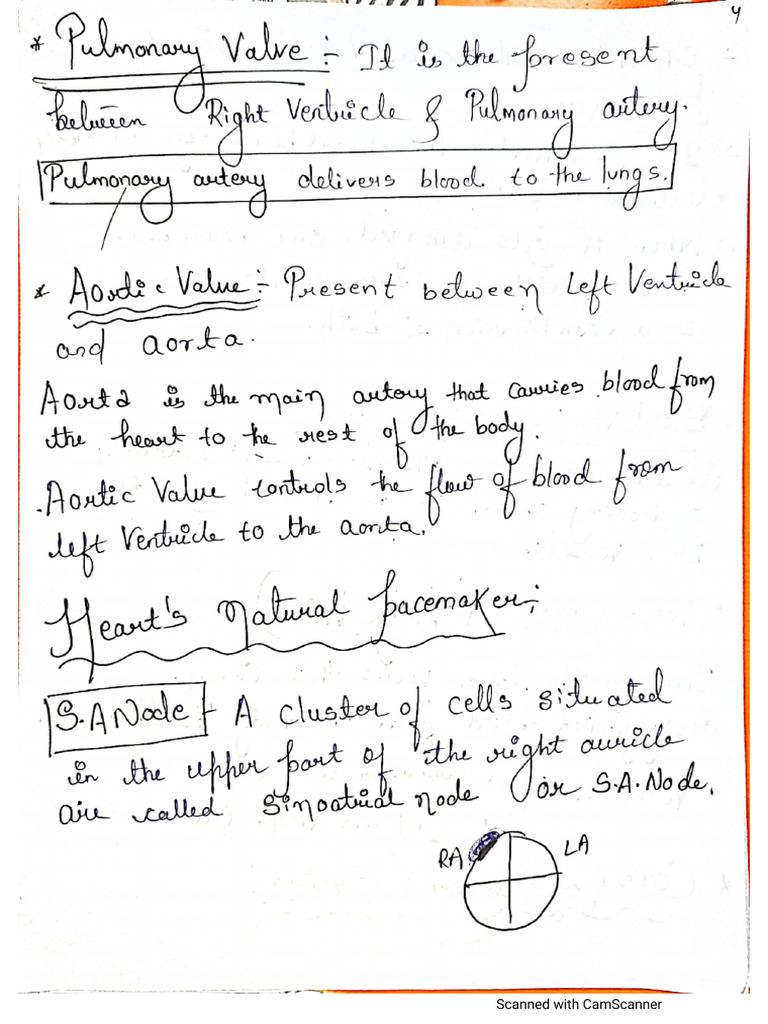 4
* Pulmonary Valve :- It is the present
between Right Ventricle & Pulmonary artery.
Pulmonary artery delivers blood to the lungs.
* Aortic Value :- Present between Left Ventricle
and aorta.
Aorta is the main artery that carries blood from
the heart to the rest of the body.
. Aortic Value controls the flow of blood from
left Ventricle to the aorta.
Heart's Natural Pacemaker :-
S.A Node - A cluster of cells situated
in the upper part of the right auricle
are called Sinoatrial node or S.A. Node.
RA LA
Scanned with CamScanner